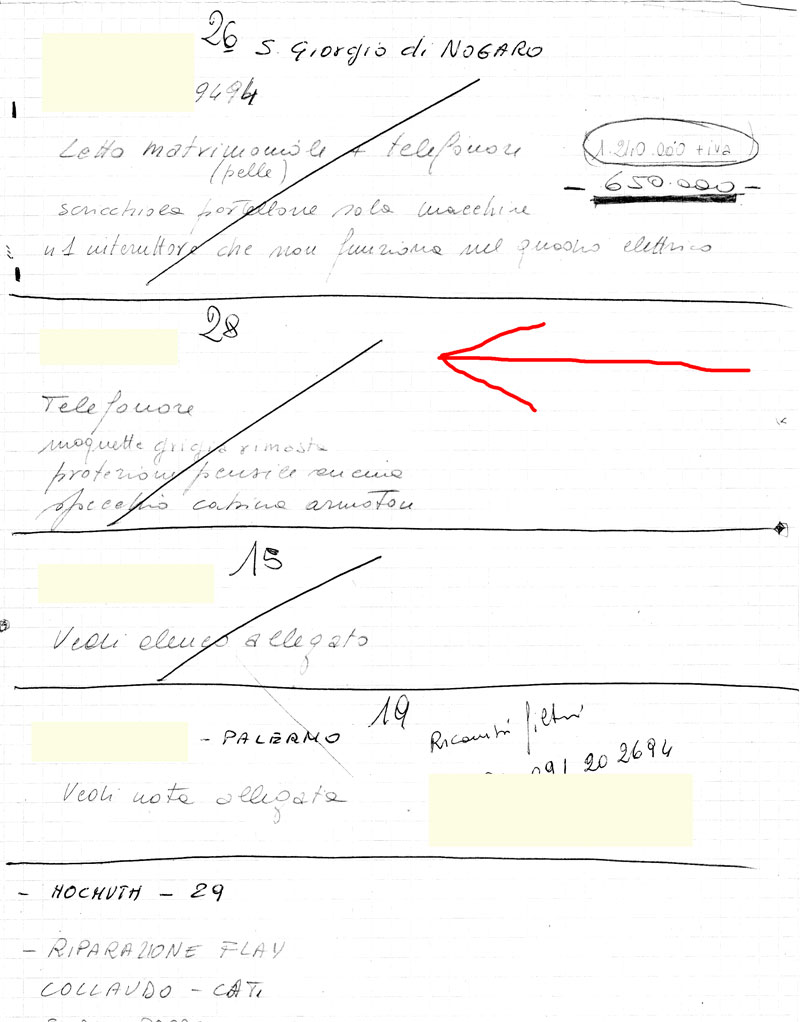 26 S. Giorgio di NOGARO
9494
Letto matrimoniale + telefonore
(pelle)
1.240.000 + iva
- 650.000 -
scricchiola portellone sala macchine
n 1 interruttore che non funziona nel quadro elettrico
28
Telefonore
moquette grigia rimasta
protezioni pensile cucina
specchio cabina armatori
15
Vedi elenco allegato
19
- PALERMO
Ricambi filtri
091 20 2694
Vedi nota allegata
- HOCHUTH - 29
- RIPARAZIONE FLAV
COLLAUDO - CAT.